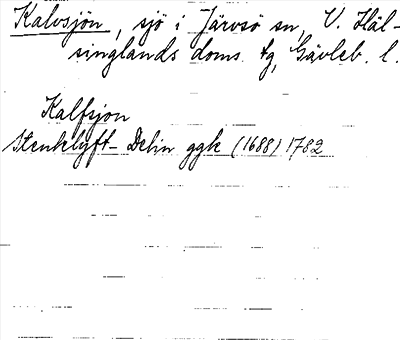 Kalvsjön, sjö i Järvsö sn, V. Häl-
singlands doms. tg, Gävleb. l.
Kalfsjon
Stenklyft- Delin ggk (1688) 1782